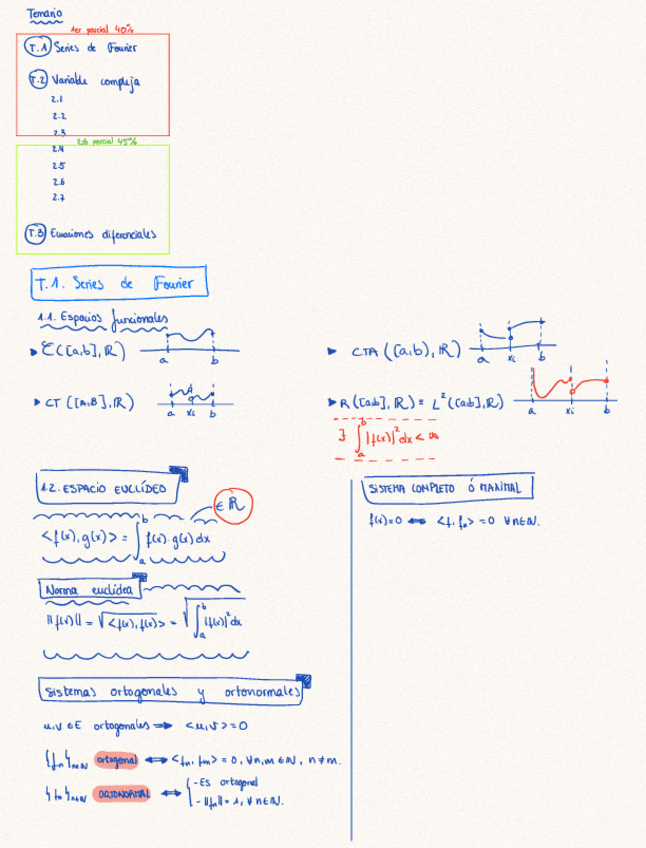 Temario
1er parcial 40%
T.1 Series de Fourier
T.2 Variable compleja
2.1
2.2
2.3
2do parcial 45%
2.4
2.5
2.6
2.7
T.3 Ecuaciones diferenciales
T.1. Series de Fourier
1.1. Espacios funcionales
▸ C([a,b],ℝ) a b
▸ CTA([a,b),ℝ) a xi b
▸ CT([A,B],ℝ) a xi b
▸ R([a,b],ℝ) = L²([a,b],ℝ) a xi b
∃ ∫_a^b |f(x)|² dx < ∞
1.2. ESPACIO EUCLÍDEO
∈ ℝ
<f(x), g(x)> = ∫_a^b f(x)·g(x) dx
Norma euclídea
||f(x)|| = √<f(x), f(x)> = √∫_a^b |f(x)|² dx
Sistemas ortogonales y ortonormales
u,v ∈ E ortogonales ⇒ <u,v> = 0
{fn}n∈N ortogonal ⇔ <fn, fm> = 0, ∀n,m ∈ N, n≠m.
{fn}n∈N ORTONORMAL ⇔ { - Es ortogonal
- ||fn|| = 1, ∀n∈N.
SISTEMA COMPLETO Ó MAXIMAL
f(x)=0 ⇔ <f, fn> = 0 ∀n∈N.